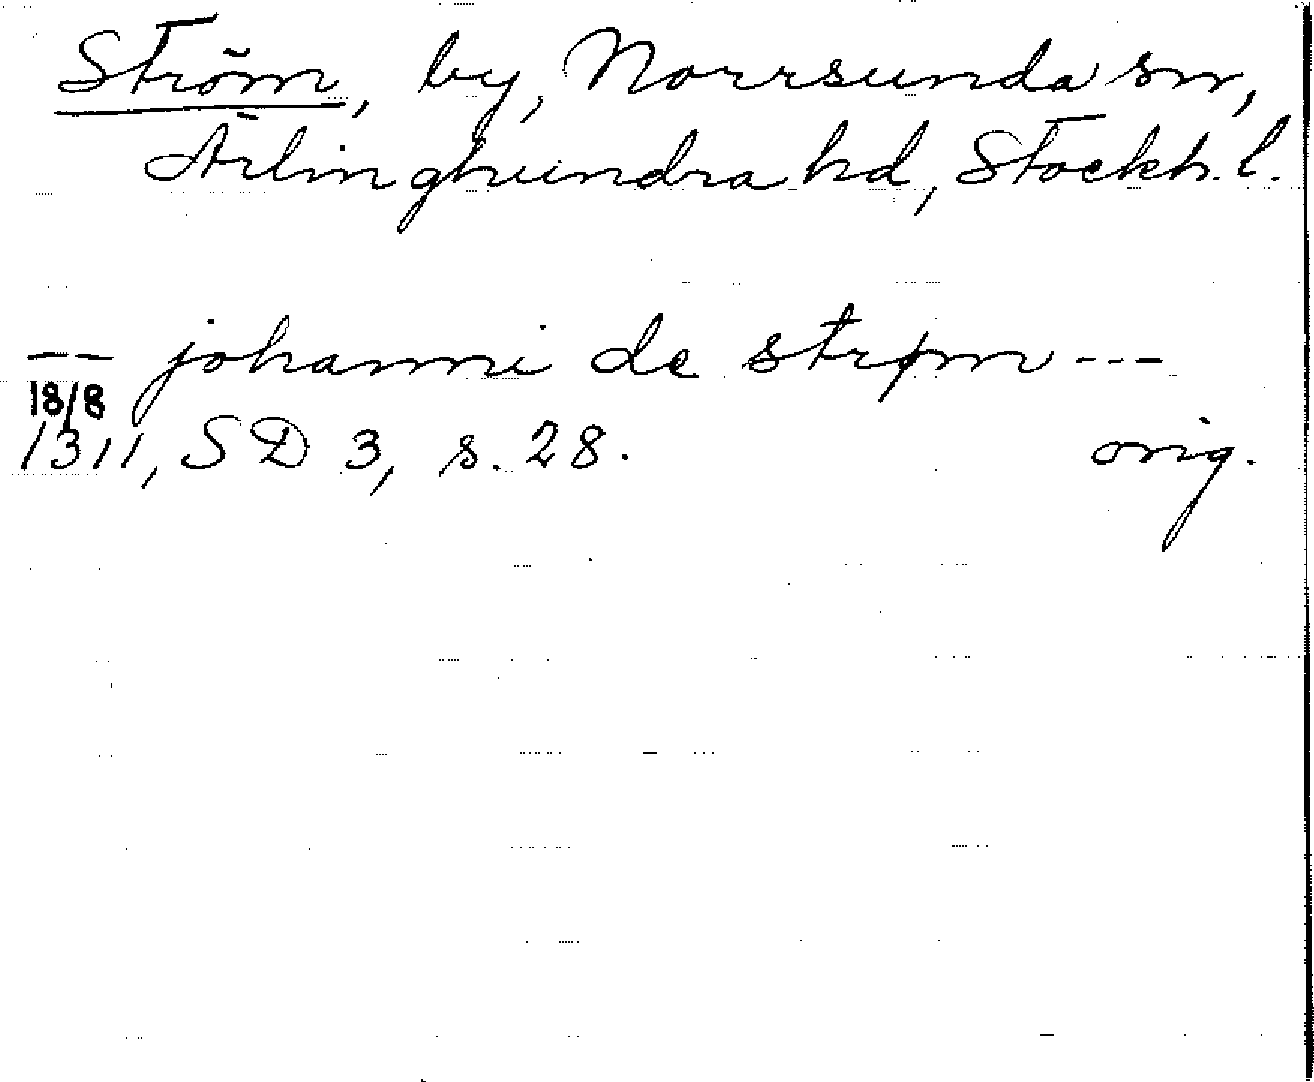 Ström, by, Norrsunda sn,
Ärlinghundra hd, Stockh. l.
-- johanni de strøm ---
18/8
1311, SD 3, s. 28. orig.